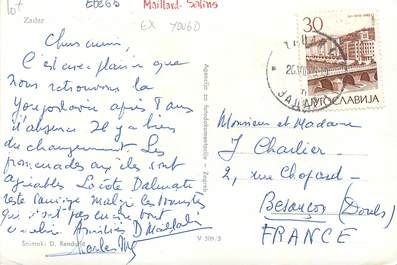 lot
EDEGS
Maillard-Salins
EX 70060
Zadar
Chers amis,
C'est avec plaisir que
nous retrouvons la
Yougoslavie après 8 ans
d'absence. Il y a bien
du changement. Les
promenades aux îles sont
agréables. La côte Dalmate
reste sauvage malgré les touristes
qui n'ont pas encore tout
Amitiés
Snimak: D. Rendulić
Agencija za fotodokumentaciju - Zagreb
V 509/3
30
ЈУГОСЛАВИЈА
Monsieur et Madame
J Charlier
2, rue Chopard
Besançon (Doubs)
FRANCE